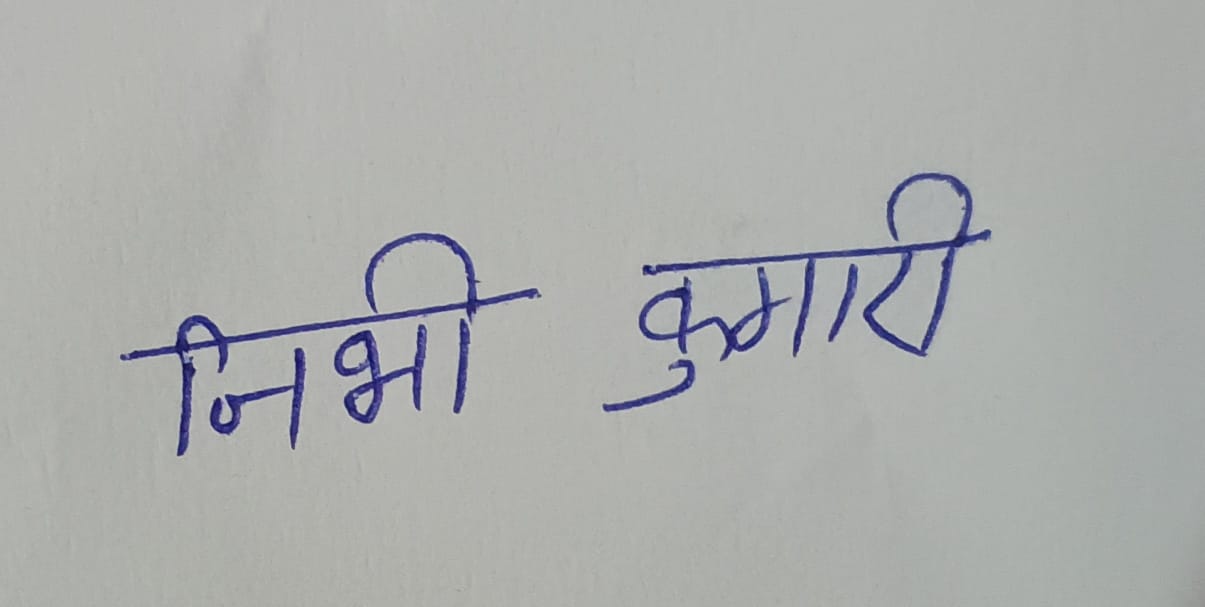 निभी कुमारी